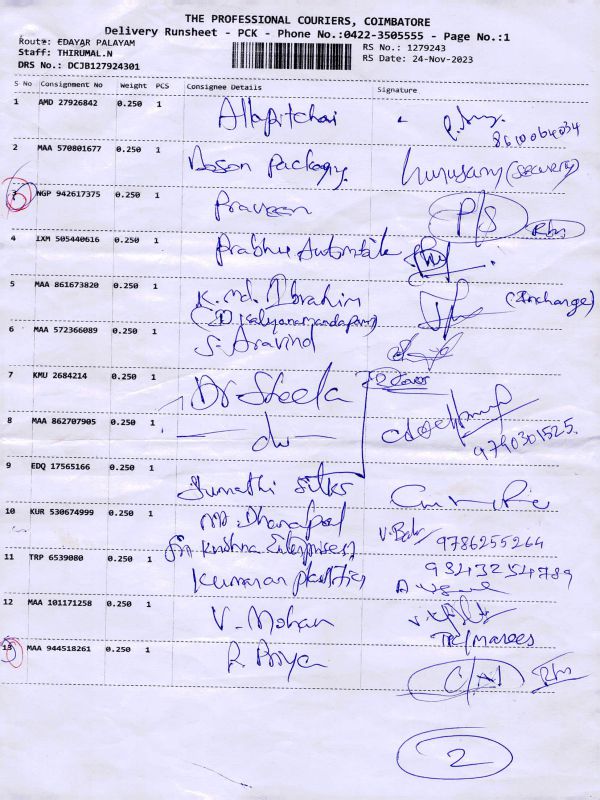 THE PROFESSIONAL COURIERS, COIMBATORE
Delivery Runsheet - PCK - Phone No.:0422-3505555 - Page No.:1
Route: EDAYAR PALAYAM
Staff: THIRUMAL.N
DRS No.: DCJB127924301
RS No.: 1279243
RS Date: 24-Nov-2023
S No Consignment No Weight PCS Consignee Details Signature
1 AMD 27926842 0.250 1 Allapitchai
8610064034
2 MAA 570801677 0.250 1 Boson Packaging (Security)
3 NGP 942617375 0.250 1 Praveen P/S Rtn
4 IXM 505440616 0.250 1 Prabhu Automatic
5 MAA 861673820 0.250 1 K. Md. Ibrahim (Incharge)
(Kalyanamandapam)
6 MAA 572366089 0.250 1 S. Aravind
7 KMU 2684214 0.250 1 Dr Sheela 2 Covers
8 MAA 862707905 0.250 1 do
9790301525
9 EDQ 17565166 0.250 1 Sumathi Silks
10 KUR 530674999 0.250 1 Dhanapal V. Babu 9786255264
Sri Krishna Enterprises
11 TRP 6539080 0.250 1 Kumaran Plastics
12 MAA 101171258 0.250 1 V. Mohan
13 MAA 944518261 0.250 1 R Priya Rtn
2